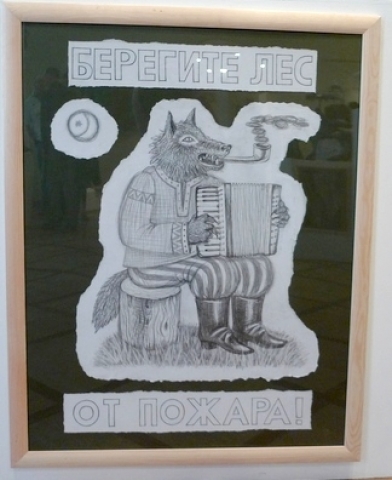 БЕРЕГИТЕ ЛЕС
ОТ ПОЖАРА!